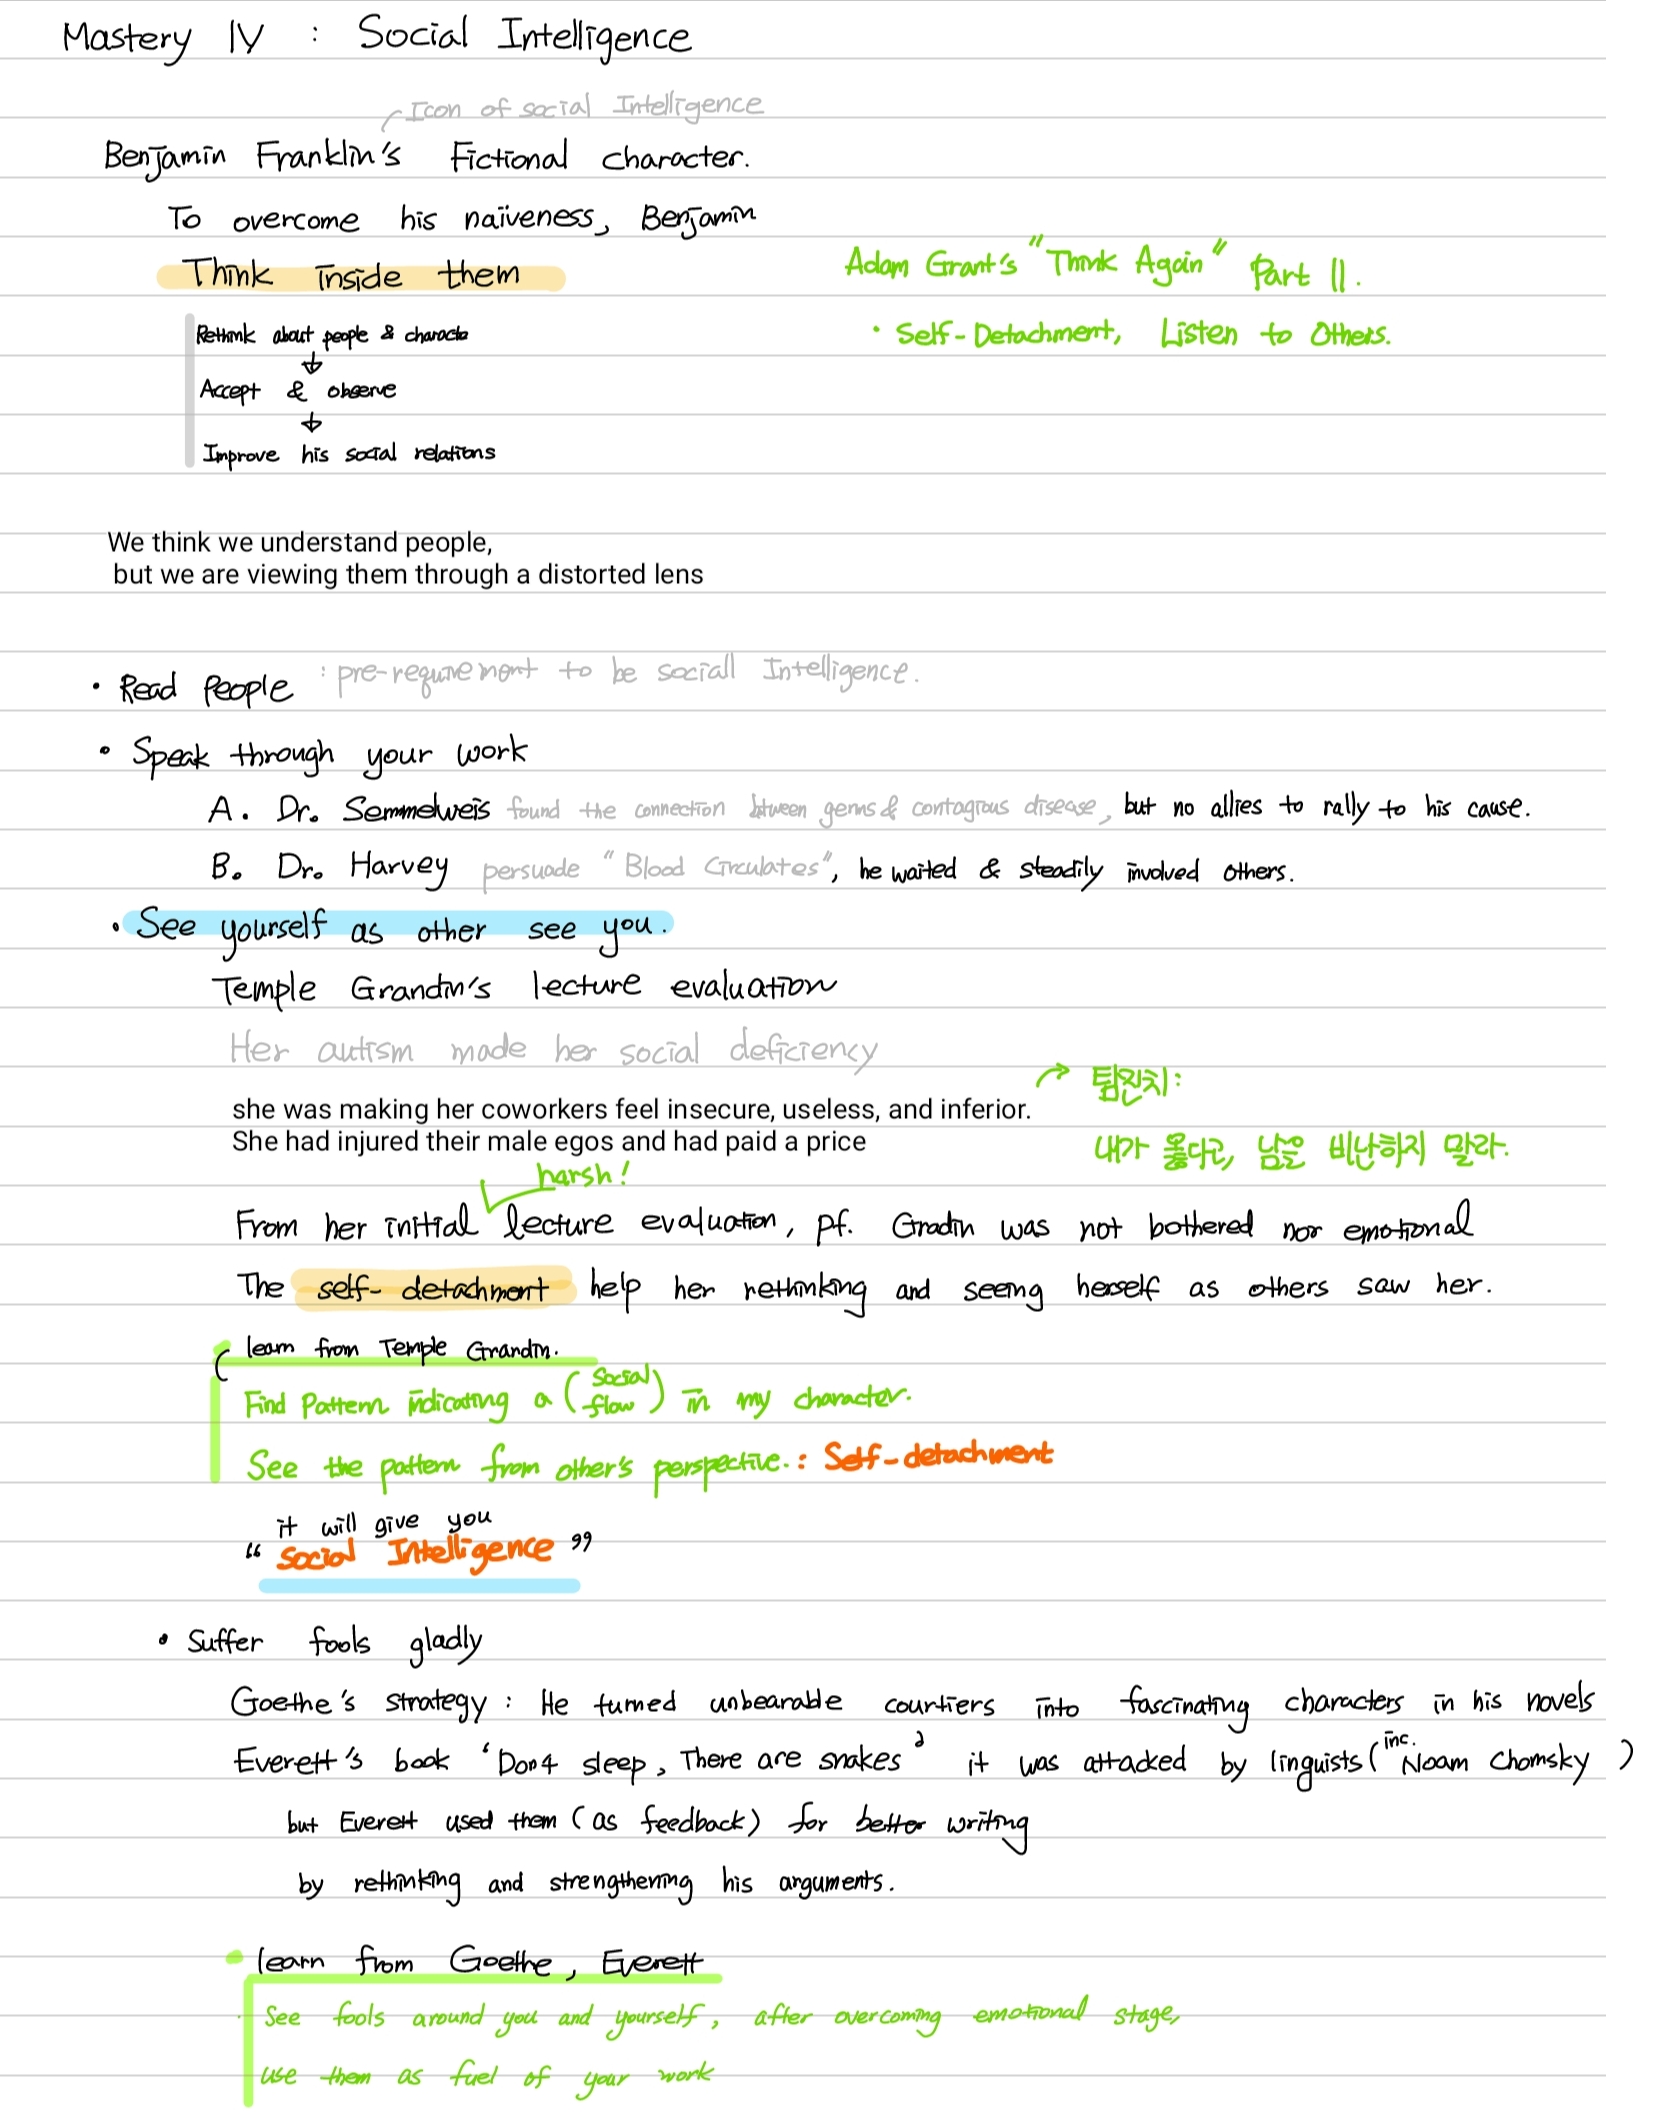 Mastery IV : Social Intelligence
Icon of social Intelligence
Benjamin Franklin's Fictional character.
To overcome his naiveness, Benjamin
Think inside them
Adam Grant's "Think Again" Part II.
Rethink about people & characte
• Self-Detachment, Listen to Others.
Accept & observe
Improve his social relations
We think we understand people,
but we are viewing them through a distorted lens
• Read People : pre-requirement to be sociall Intelligence.
• Speak through your work
A. Dr. Semmelweis found the connection between germs & contagious disease, but no allies to rally to his cause.
B. Dr. Harvey persuade "Blood Circulates", he waited & steadily involved others.
• See yourself as other see you.
Temple Grandin's lecture evaluation
Her autism made her social deficiency
she was making her coworkers feel insecure, useless, and inferior.
She had injured their male egos and had paid a price
탐진치:
내가 옳다고, 남을 비난하지 말라.
harsh!
From her initial lecture evaluation, pf. Gradin was not bothered nor emotional
The self-detachment help her rethinking and seeing herself as others saw her.
learn from Temple Grandin.
Find Pattern indicating a (social flow) in my character.
See the pattern from other's perspective. : Self-detachment
it will give you
“ Social Intelligence ”
• Suffer fools gladly
Goethe's strategy : He turned unbearable courtiers into fascinating characters in his novels
Everett's book 'Don't sleep, There are snakes' it was attacked by linguists (inc. Noam Chomsky )
but Everett used them (as feedback) for better writing
by rethinking and strengthening his arguments.
learn from Goethe, Everett
See fools around you and yourself, after overcoming emotional stage,
use them as fuel of your work